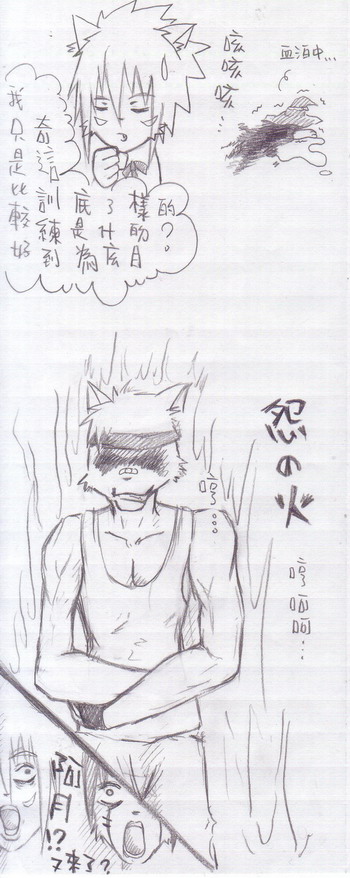 血泊中…
咳咳咳…
我只是比較好
奇這訓練到
底是為
了什麼
樣的目
的?。
怨の火
哼…
哼呵呵…
阿月!?
又來了?